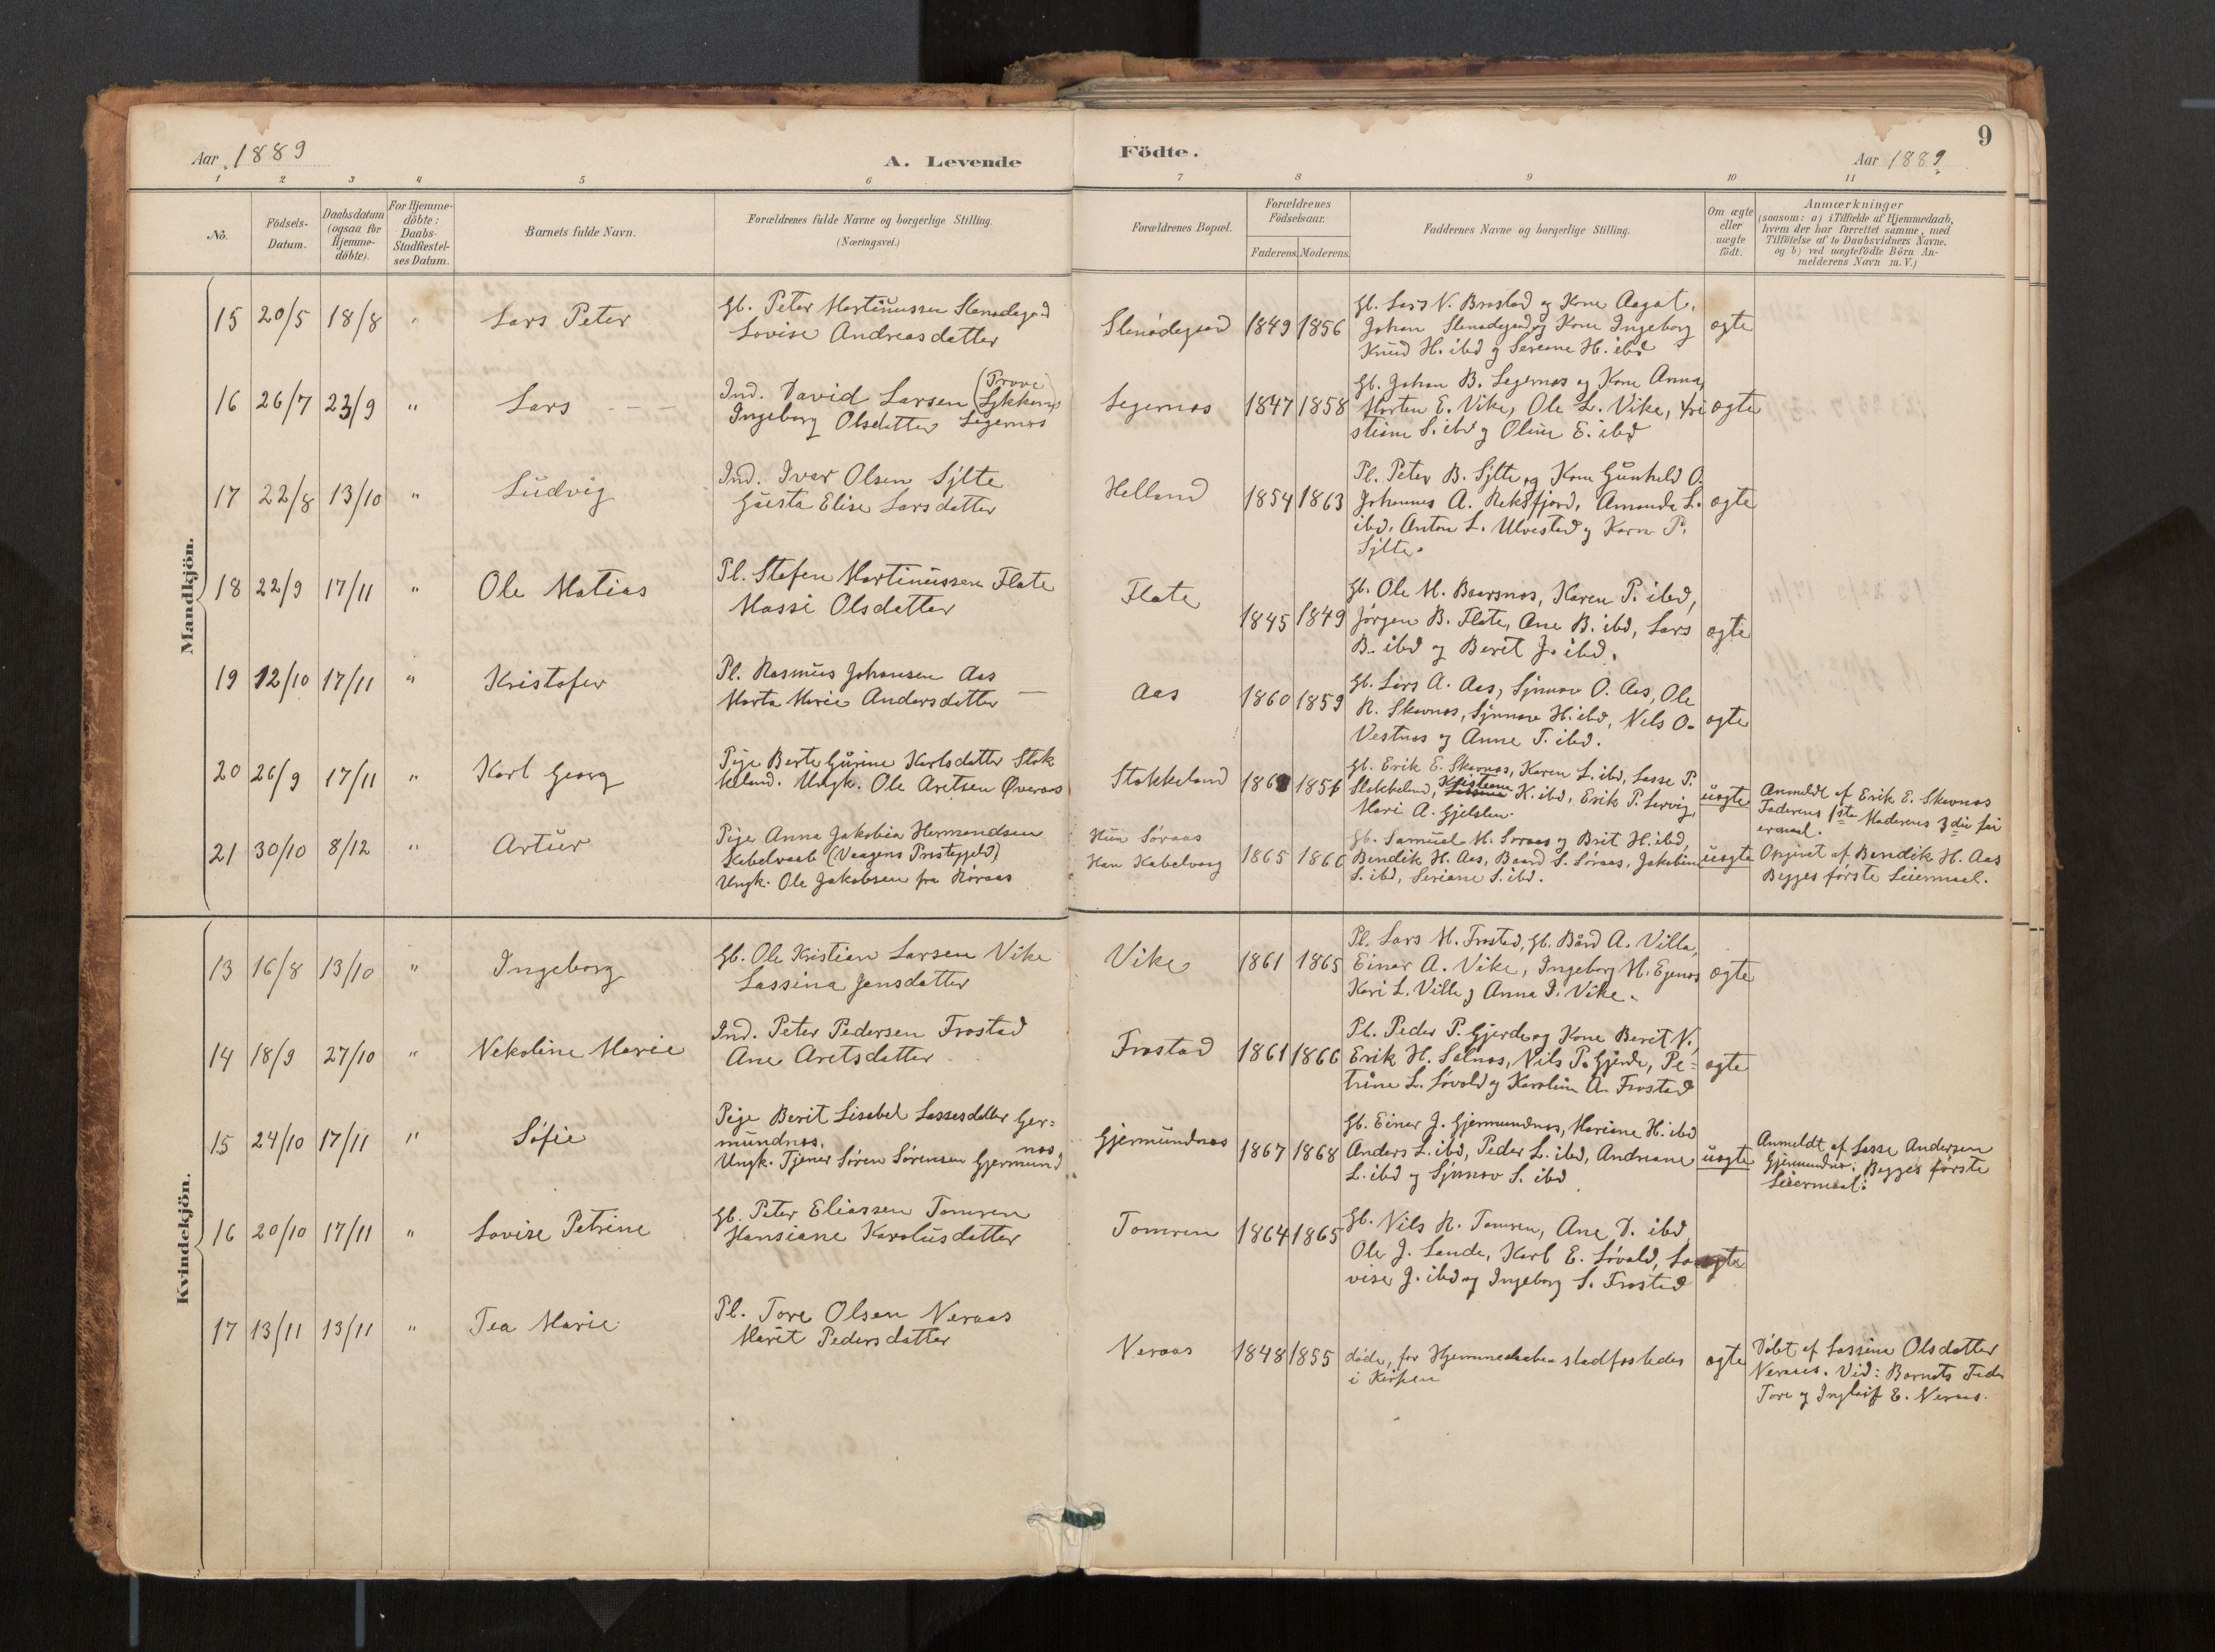 Aar 1889
A. Levende
Födte.
Aar 1889
9
1 2 3 4 5 6 7 8 9 10 11
No.
Födsels-Datum.
Daabsdatum (ogsaa for Hjemme-döbte).
For Hjemme-döbte: Daabs-Stadfæstel-ses Datum.
Barnets fulde Navn.
Forældrenes fulde Navne og borgerlige Stilling.
(Næringsvei.)
Forældrenes Bopæl.
Forældrenes Födselsaar.
Faderens. Moderens.
Faddernes Navne og borgerlige Stilling.
Om ægte eller uægte födt.
Anmærkninger
(saasom: a) i Tilfælde af Hjemmedaab,
hvem der har forrettet samme, med
Tilföielse af to Daabsvidners Navne,
og b) ved uægtefödte Börn An-
melderens Navn m. V.)
Mandkjön.
15 20/5 18/8 " Lars Peter
Gb. Peter Martinussen Stenødegaard
Lovise Andreasdatter
Stenødegaard 1849 1856
Gb. Lars N. Brastad og Kone Aagot,
Johan Stenødegaard og Kone Ingeborg
Knud H. ibd og Seriane H. ibd
ægte
16 26/7 23/9 " Lars
Ind. David Larsen (Prove Lykkens)
Ingeborg Olsdatter Legernæs
Legernæs 1847 1858
Gb. Johan B. Legernæs og Kone Anna,
Morten E. Vike, Ole L. Vike, Kri
stiane S. ibd og Oline E. ibd
ægte
17 22/8 13/10 " Ludvig
Ind. Ivar Olsen Sylte
Gusta Elise Larsdatter
Helland 1854 1863
Pl. Peter B. Sylte og Kone Gunhild O.
Johannes A. Reksfjord, Amanda L.
ibd, Anton L. Ulvestad og Karn P.
Sylte.
ægte
18 22/9 17/11 " Ole Matias
Pl. Stefen Martinussen Flate
Massi Olsdatter
Flate 1845 1849
Gb. Ole M. Baarsnæs, Karen P. ibd,
Jørgen B. Flate, Ane B. ibd, Lars
B. ibd og Berit J. ibd.
ægte
19 12/10 17/11 " Kristofer
Pl. Rasmus Johansen Aas
Marta Marie Andersdatter
Aas 1860 1859
Gb. Lars A. Aas, Synnøv O. Aas, Ole
R. Skavnæs, Synnøve H. ibd, Nils O.
Vestnæs og Anne T. ibd.
ægte
20 26/9 17/11 " Karl Georg
Pige Berte Gurine Karlsdatter Stok
keland. Ungk. Ole Aretsen Øveraas
Stokkeland 1851
Gb. Erik E. Skavnæs, Karen L. ibd, Lasse P.
Stokkeland, Kristiane K. ibd, Erik P. Servig,
Mari A. Gjelsten.
uægte
Anmeldt af Erik E. Skavnæs
Faderens 1ste Moderens 3die Lei
ermaal.
21 30/10 8/12 " Artur
Pige Anna Jakobia Hermandsen
Kabelvaab (Vaagens Prestegjeld)
Ungk. Ole Jakobsen fra Røraas
Hun Søraas
Han Kabelvaag
1865 1866
Gb. Samuel M. Søraas og Brit H. ibd,
Bendik H. Aas, Baard S. Søraas, Jakobine
S. ibd, Seriane S. ibd.
uægte
Opgivet af Bendik H. Aas
Begges første Leiermaal.
Kvindekjön.
13 16/8 13/10 " Ingeborg
Gb. Ole Kristian Larsen Vike
Lassina Jensdatter
Vike 1861 1865
Pl. Lars M. Frostad, Gb. Bård A. Villa,
Einar A. Vike, Ingeborg M. Egenæs
Kari L. Villa og Anna I. Vike.
ægte
14 18/9 27/10 " Nekoline Marie
Ind. Peter Pedersen Frostad
Ane Aretsdatter
Frostad 1861 1866
Pl. Peder P. Gjerde og Kone Berit N.,
Erik H. Salnæs, Nils P. Gjerde, Pe-
trine L. Løvold og Karoline A. Frostad
ægte
15 24/10 17/11 " Sofie
Pige Berit Lisabet Lassesdatter Gjer=
mundnæs.
Ungk. Tjener Søren Sørensen Gjermund
næs
Gjermundnæs 1867 1868
Gb. Einar J. Gjermundnæs, Mariane H. ibd
Anders L. ibd, Peder L. ibd, Andreane
L. ibd og Synnøv S. ibd
uægte
Anmeldt af Lasse Andersen
Gjermundnæs. Begges første
Leiermaal.
16 20/10 17/11 " Lovise Petrine
Gb. Peter Eliassen Tomren
Hansiane Karolusdatter
Tomren 1864 1865
Gb. Nils R. Tomren, Ane D. ibd,
Ole J. Sande, Karl E. Løvold, Lo
vise J. ibd og Ingeborg S. Frostad
ægte
17 13/11 13/11 " Tea Marie
Pl. Tore Olsen Neraas
Marit Pedersdatter
Neraas 1848 1855
døde, før Hjemmedaaben stadfæstedes
i Kirken
ægte
Døbt af Lassine Olsdatter
Neraas. Vid: Barnets Fader
Tore og Ingleif E. Neraas.